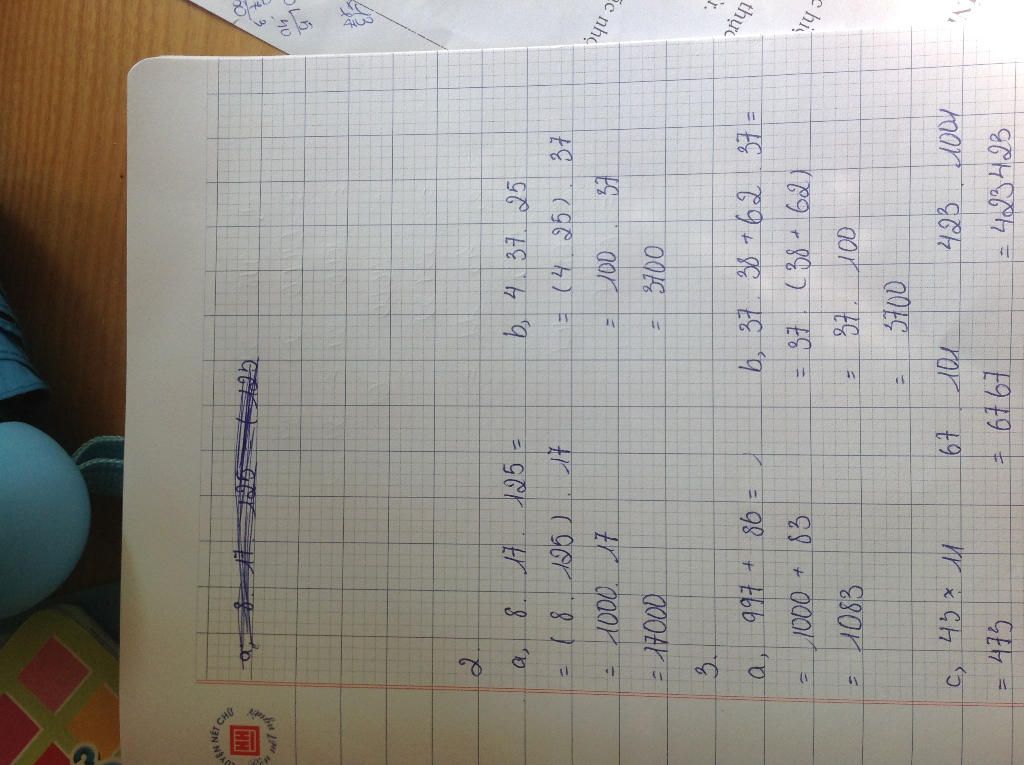 a, 8. 17. 125 = (125
2.
a, 8. 17. 125 =
= (8. 125). 17
= 1000. 17
= 17000
b, 4. 37. 25
= (4. 25). 37
= 100. 37
= 3700
3.
a, 997 + 86 =
= 1000 + 83
= 1083
b, 37. 38 + 62. 37 =
= 37. (38 + 62)
= 37. 100
= 3700
c, 43 × 11
= 473
67. 101
= 6767
423. 1001
= 423423